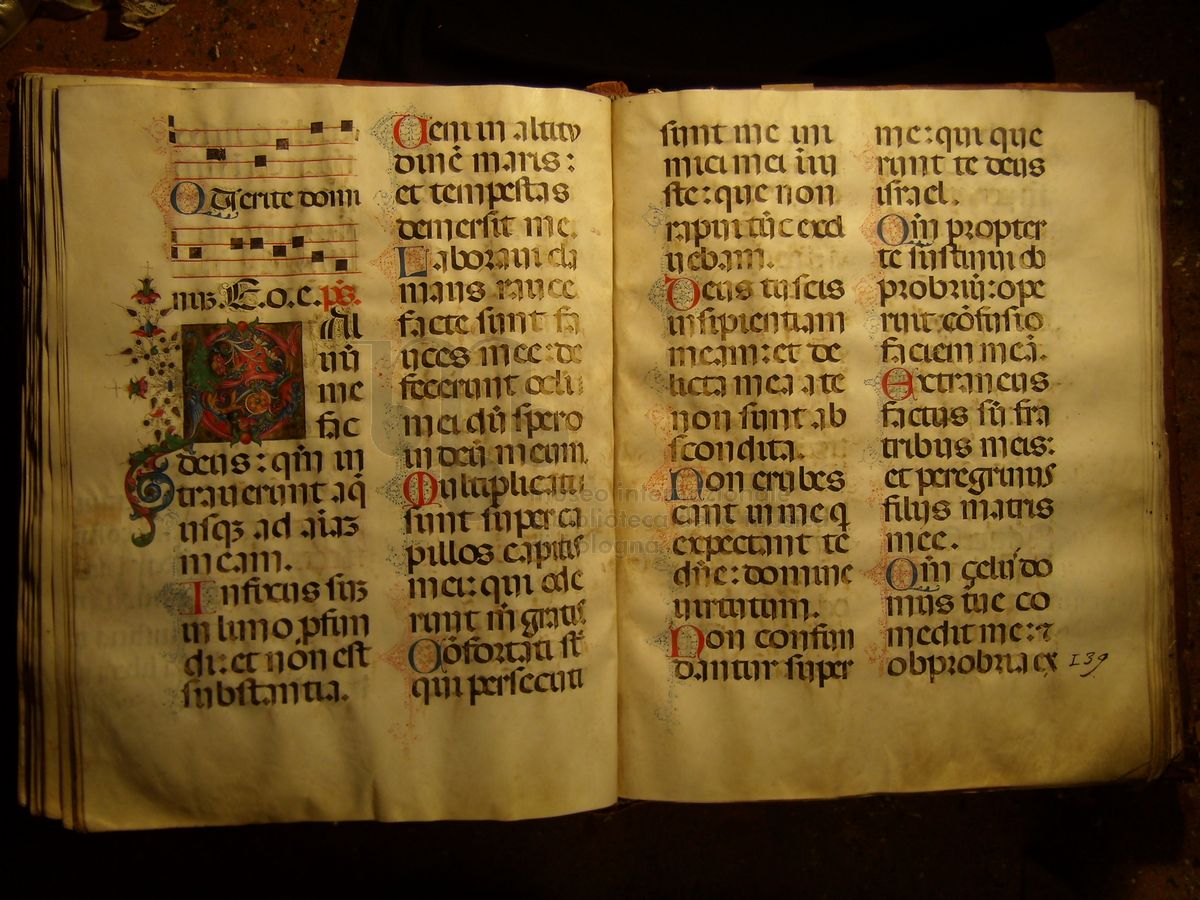 Q uerite domi
nuz. E. o. e. ps.
Al
uū
me
fac
deus: qm̄ in
trauerunt aq̄
usqz ad aīaz
meam.
Infixus suz
in limo pfun
di: et non est
substantia.
Ueni in altitu
dinē maris:
et tempestas
demersit me.
Laboraui cla
mans rauce
facte sunt fa
uces mee: de
fecerunt oculi
mei dū spero
in deū meum.
Multiplicati
sunt super ca
pillos capitis
mei: qui ode
runt m̄ gratis
Cōfortati st̄
qui persecuti
sunt me ini
mici mei iniu
ste: que non
rapui tūc exol
uebam.
Deus tu scis
insipientiam
meam: et de
licta mea a te
non sunt ab
scondita.
Non erubes
cant in me q
expectant te
dn̄e: domine
uirtutum.
Non confun
dantur super
me: qui que
runt te deus
israel.
Qm̄ propter
te sustinui ob
probriū: ope
ruit cōfusio
faciem meā.
Extraneus
factus sū fra
tribus meis:
et peregrinus
filijs matris
mee.
Qm̄ çelus do
mus tue co
medit me: ⁊
obprobria ex
139
museo internazionale
biblioteca
bologna